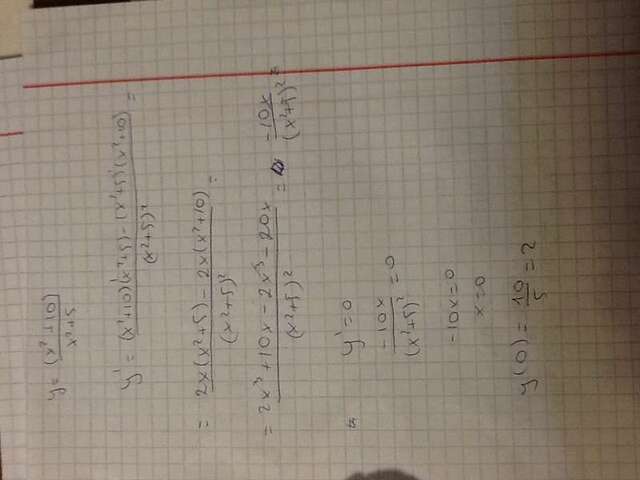 y = (x² + 10) / x² + 5
y' = (x² + 10)'(x² + 5) - (x² + 5)'(x² + 10) / (x² + 5)² =
= 2x(x² + 5) - 2x(x² + 10) / (x² + 5)² =
= 2x³ + 10x - 2x³ - 20x / (x² + 5)² = -10x / (x² + 5)² =
= y' = 0
-10x / (x² + 5)² = 0
-10x = 0
x = 0
y(0) = 10 / 5 = 2